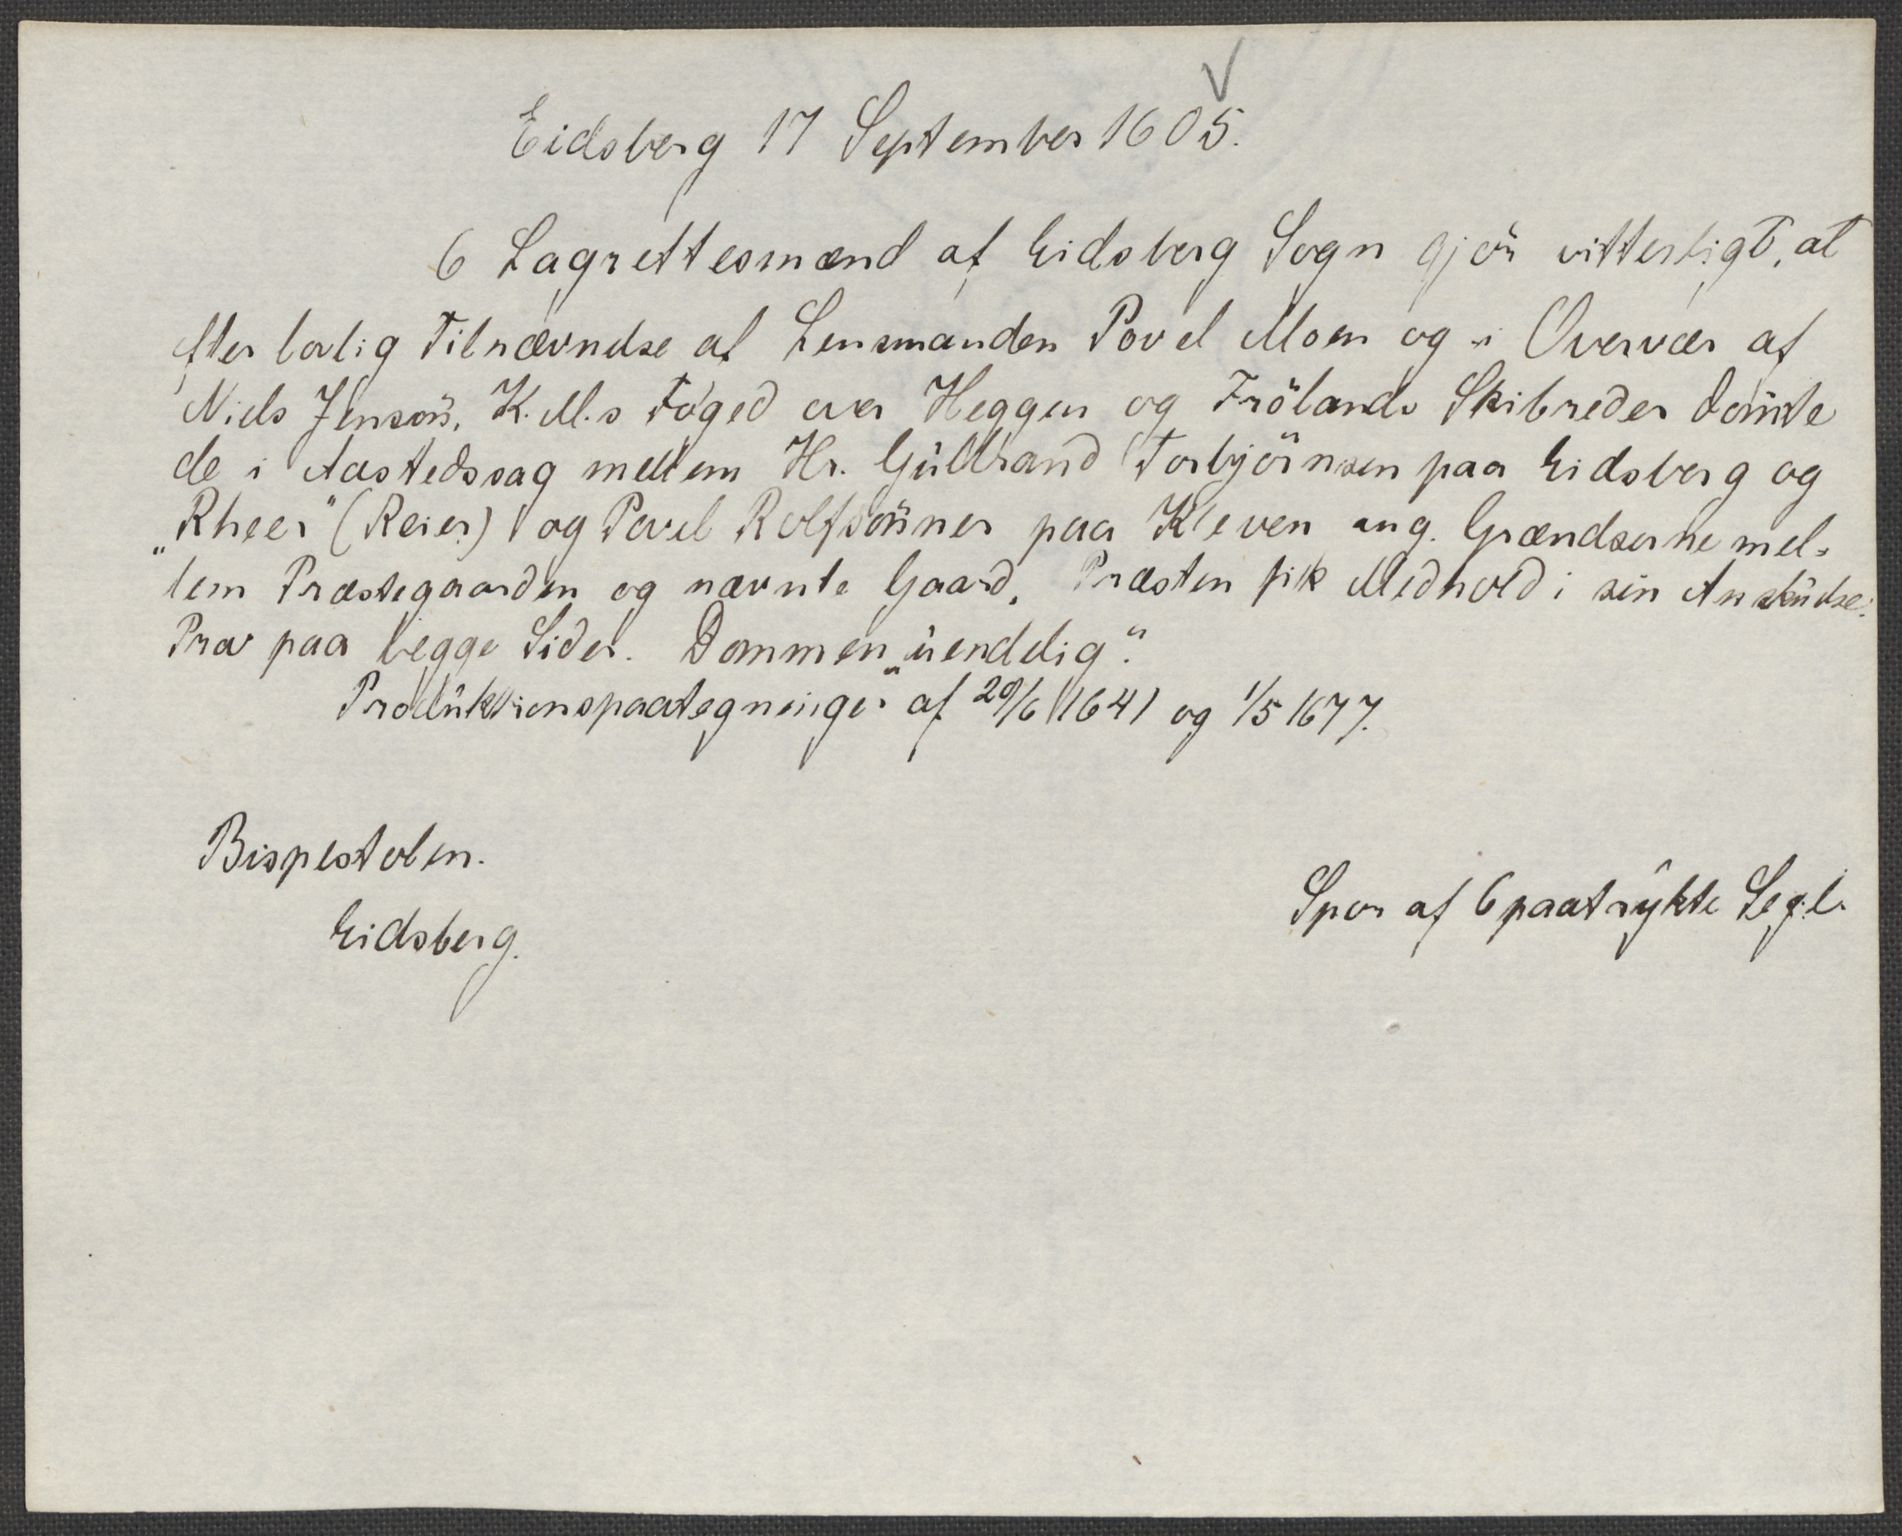 Eidsberg 17 September 1605.
6 Lagrettesmænd af Eidsberg Sogn gjör vitterligt, at
efter lovlig Tilnævnelse af Lensmanden Povel Moen og i Overvær af
Niels Jensön, K. M.s Foged over Heggen og Frölands Skibreder dömte
de i Aastedssag mellem Hr. Gulbrand Torbjörnsen paa Eidsberg og
„Rheer" (Reier) og Povel Rolfsönner paa Kleven ang. Grændserne mel-
lem Præstegaarden og nævnte Gaard. Præsten fik Medhold i sin Anskuelse.
Prov paa begge Sider. Dommen „uendelig".
Produktionspaategninger af 20/6 1641 og 1/5 1677.
Bispestolen.
Eidsberg.
Spor af 6 paatrykte Segl.